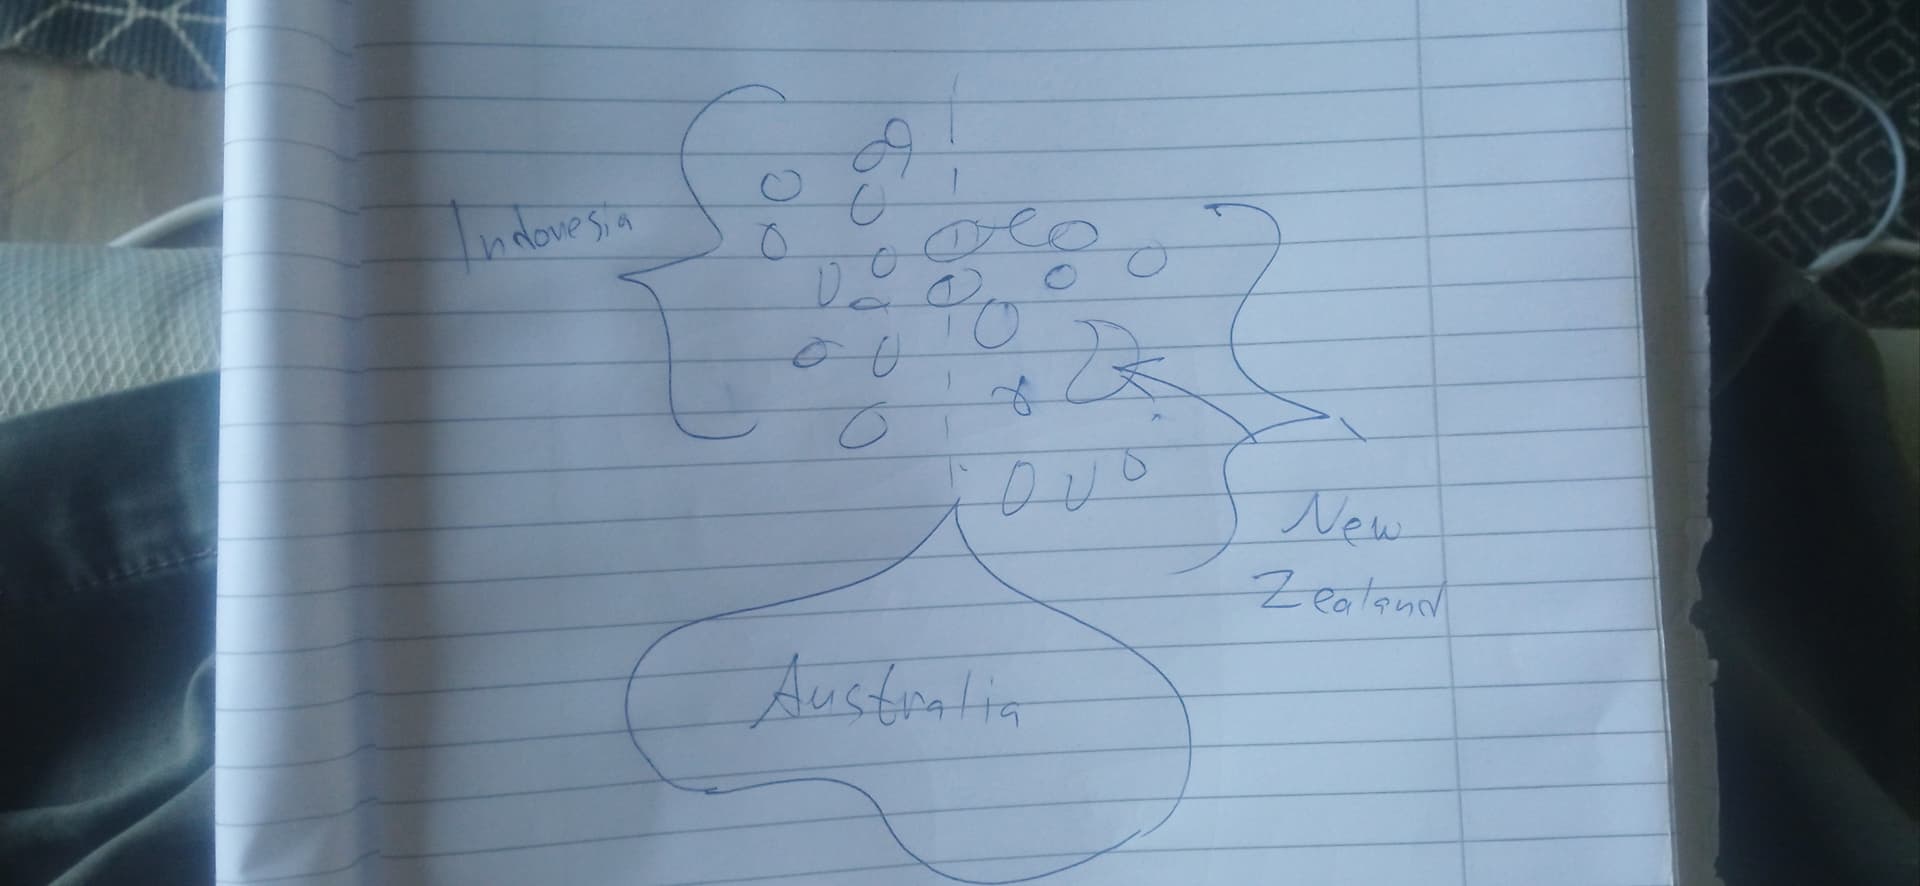 Indonesia
New
Zealand
Australia